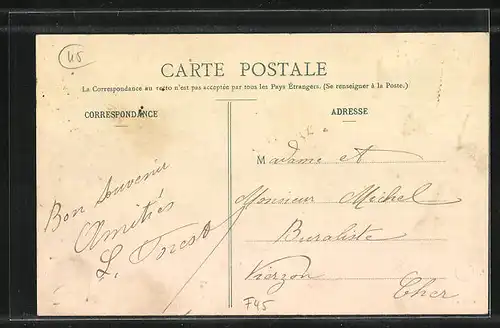 45
CARTE POSTALE
La Correspondance au recto n'est pas acceptée par tous les Pays Étrangers. (Se renseigner à la Poste.)
CORRESPONDANCE
ADRESSE
Bon Souvenir
Amitiés
L. Forest
Madame et
Monsieur Michel
Buraliste
Vierzon
Cher
F45